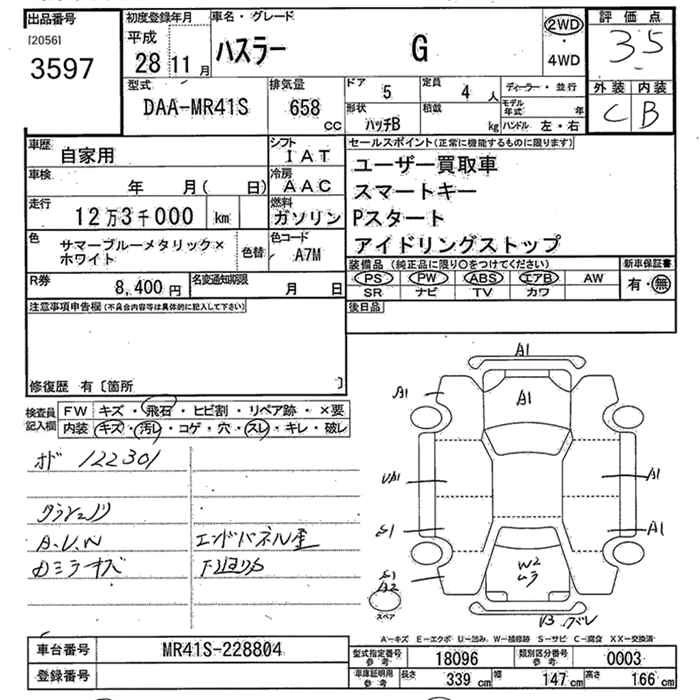 出品番号
[2056]
3597
初度登録年月
平成
28 11 月
車名・グレード
ハスラー G
2WD
・
4WD
評価点
3.5
外装 内装
C B
型式
DAA-MR41S
排気量
658 cc
ドア
5
定員
4 人
形状
ハッチB
積載
kg
ディーラー・並行
モデル年式 年
ハンドル 左・右
車歴
自家用
シフト
IAT
車検
年 月( 日)
冷房
AAC
走行
12万3千000 km
燃料
ガソリン
色
サマーブルーメタリック×
ホワイト
色替
色コード
A7M
R券
8,400 円
名変通知期限
月 日
注意事項申告欄(不具合内容等は具体的に記入して下さい)
修復歴 有〔箇所 〕
セールスポイント(正常に機能するものに限ります)
ユーザー買取車
スマートキー
Pスタート
アイドリングストップ
装備品(純正品に限り○をつけてください)
PS PW ABS エアB AW
SR ナビ TV カワ
新車保証書
有・無
後日品
検査員
記入欄
FW キズ・飛石・ヒビ割・リペア跡・×要
内装 キズ・汚レ・コゲ・穴・スレ・キレ・破レ
オド 122301
A.U.W
エンドパネル歪
下廻りサ
A1
A1
A1
UA1
A1
S1
A1
W2
ムラ
S1
A2
スペア
A−キズ E−エクボ U−凹み W−補修跡 S−サビ C−腐食 XX−交換済
車台番号
MR41S-228804
登録番号
型式指定番号
参考
18096
類別区分番号
参考
0003
車庫証明用
参考
長さ 339 cm 幅 147 cm 高さ 166 cm